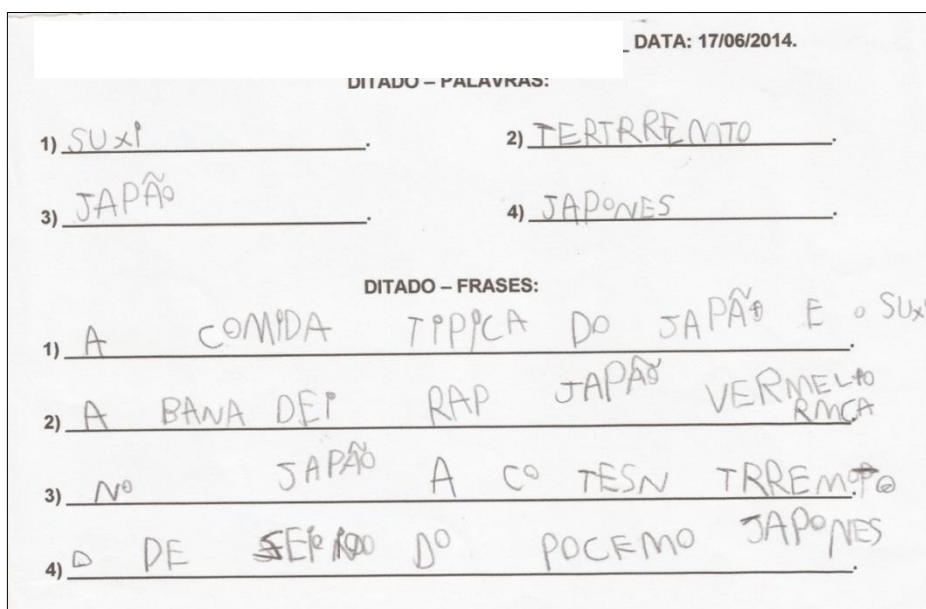 DATA: 17/06/2014.
DITADO – PALAVRAS:
1) SUXI. 2) TERTRREMTO.
3) JAPÃO. 4) JAPONES.
DITADO – FRASES:
1) A COMIDA TIPICA DO JAPÃO E O SUXI.
2) A BANA DEI RAP JAPÃO VERMELHO RMCA.
3) NO JAPÃO A CO TESN.
4) DE DO POCEMO JAPONES.